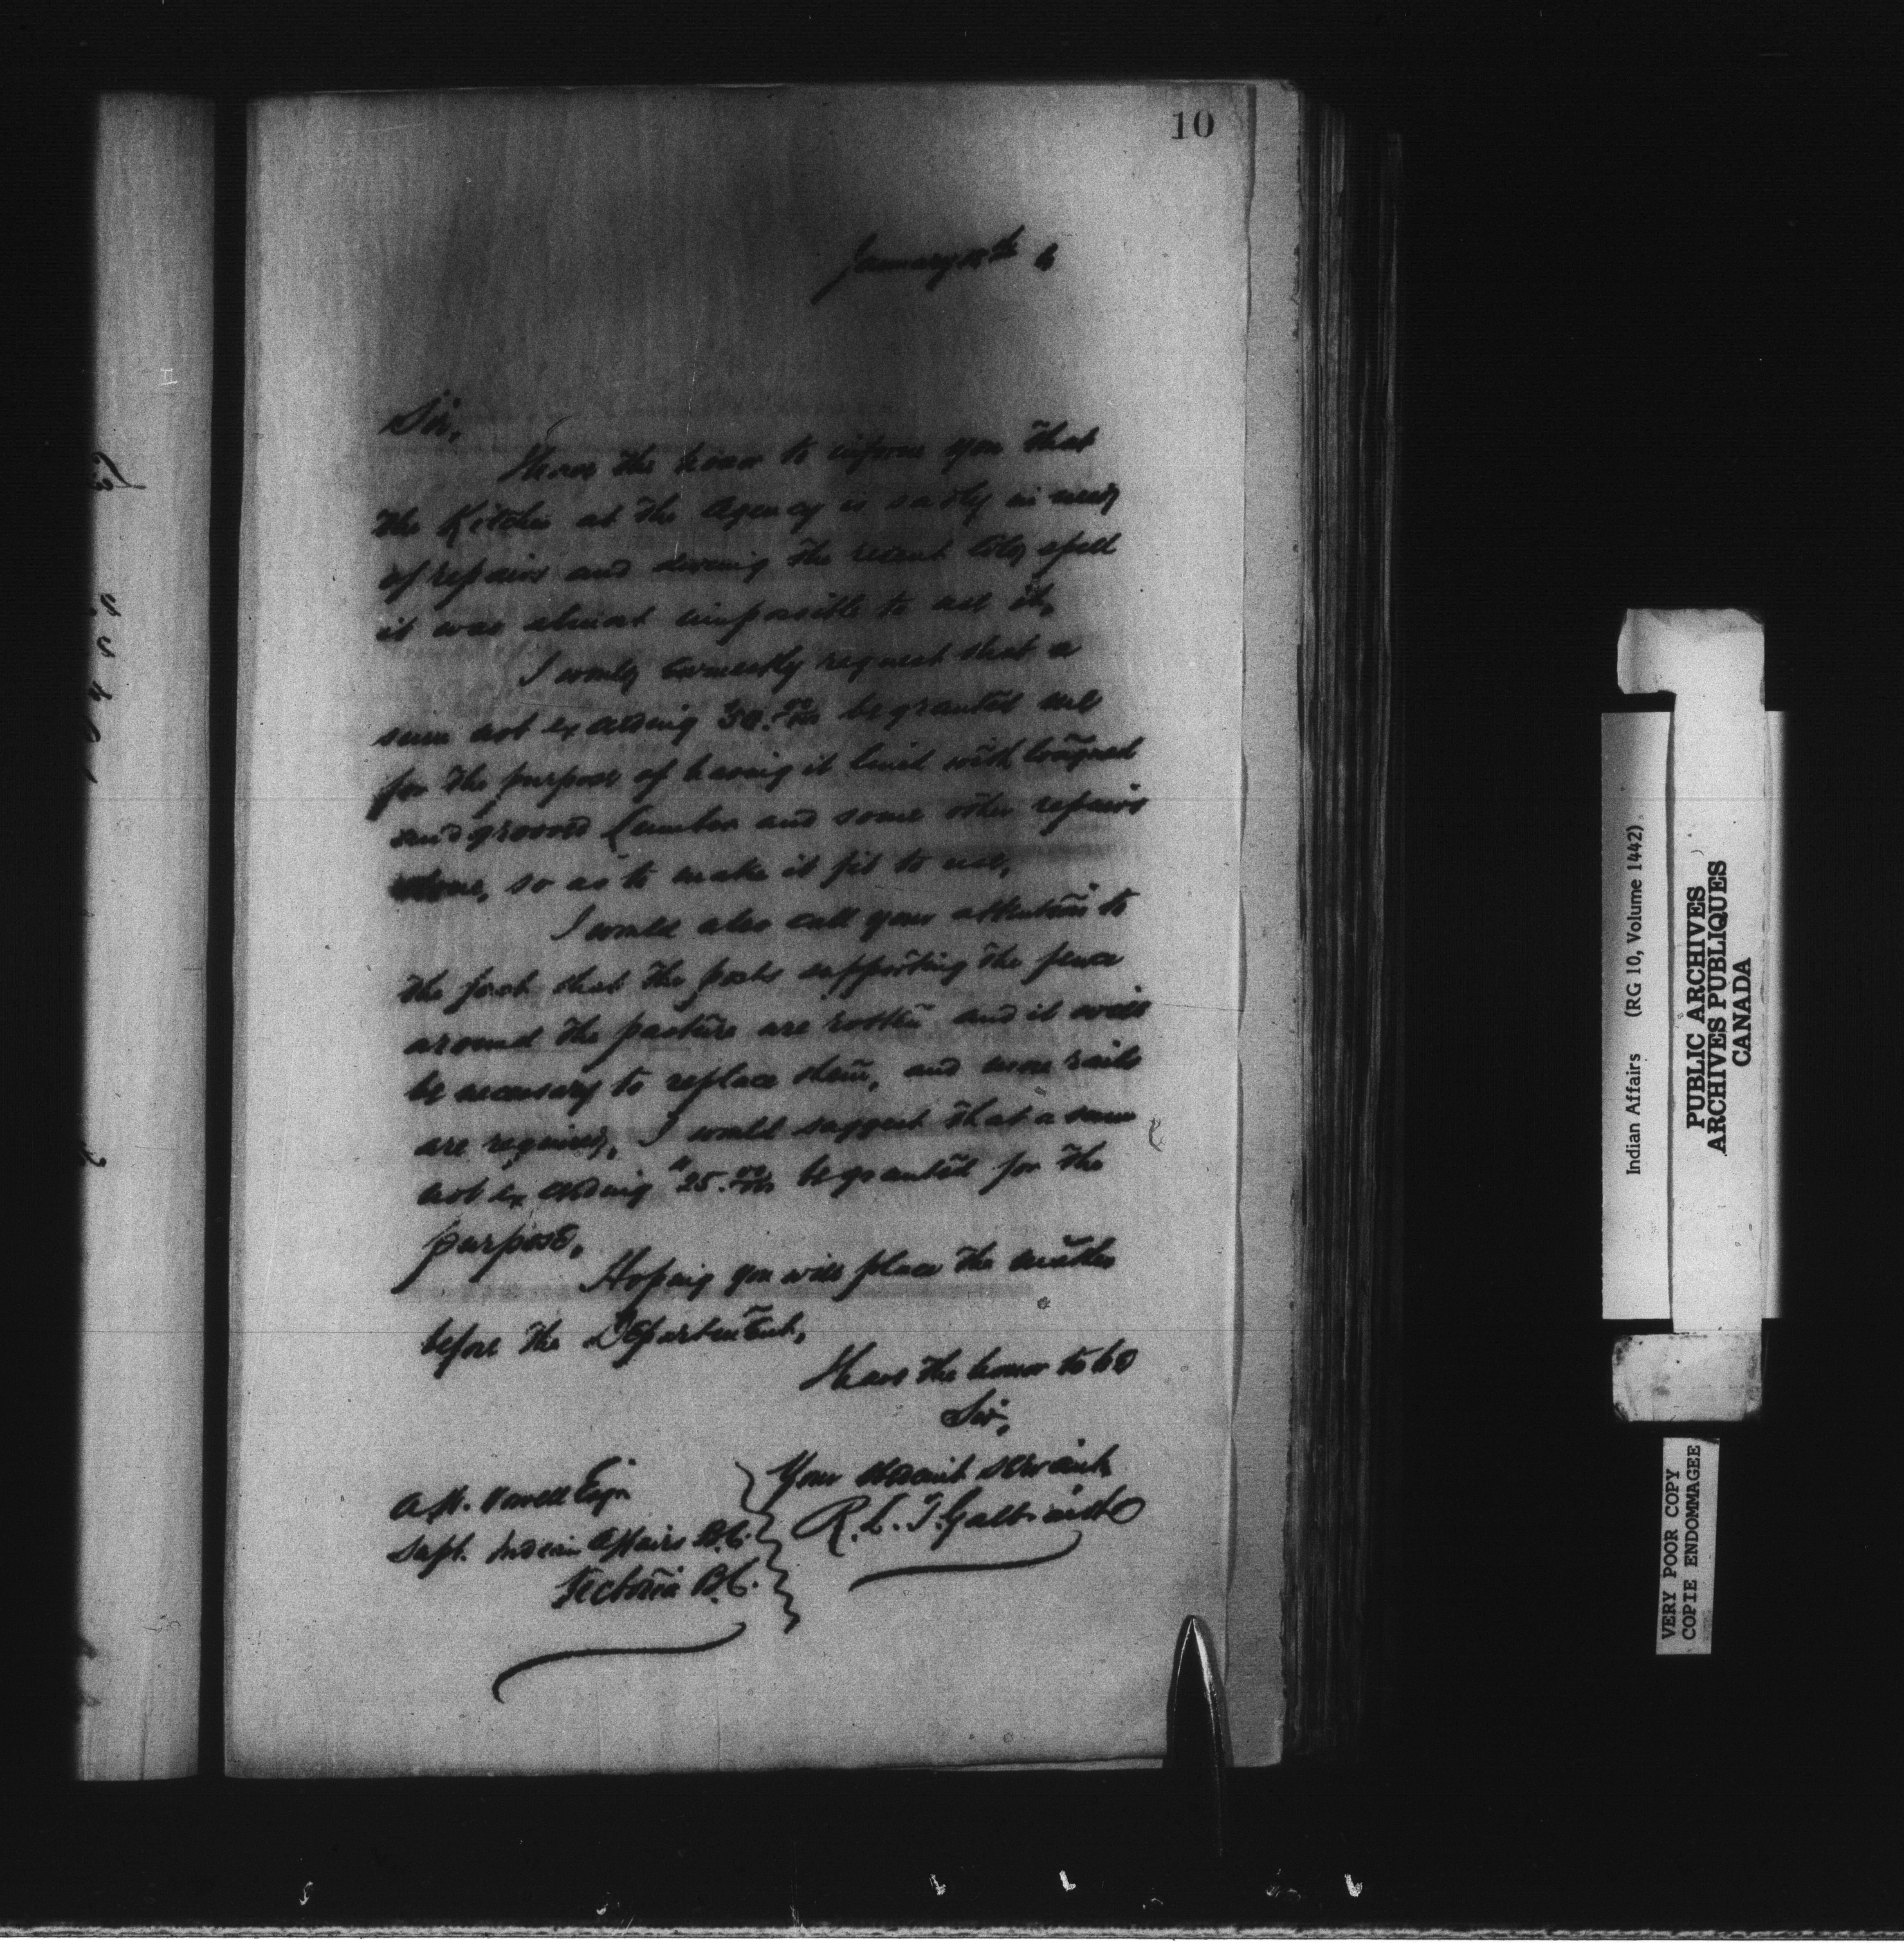 10
January 15th 6
Sir,
I have the honor to inform you that
the Kitchen at the Agency is sadly in need
of repairs and during the recent cold spell
it was almost impossible to use it,
I would earnestly request that a
sum not exceeding $30.00/100 be granted me
for the purpose of having it lined with tongued
and grooved lumber and some other repairs
done, so as to make it fit to use,
I would also call your attention to
the fact that the posts supporting the fence
around the pasture are rotten and it will
be necessary to replace them, and more rails
are required, I would suggest that a sum
not exceeding $25.00/100 be granted for the
purpose,
Hoping you will place the matter
before the Department,
I have the honor to be
Sir,
Your obedient servant
R. L. T. Galbraith
A. W. Vowell Esqr
Supt. Indian Affairs B.C.
Victoria B.C.
Indian Affairs (RG 10, Volume 1442)
PUBLIC ARCHIVES
ARCHIVES PUBLIQUES
CANADA
VERY POOR COPY
COPIE ENDOMMAGEE